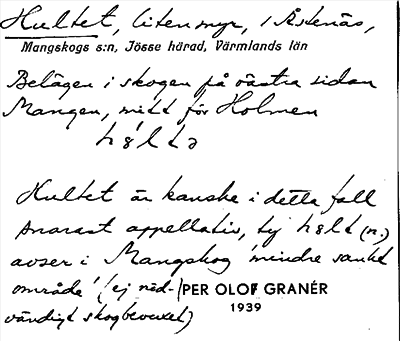 Hultet, liten myr, i Åstenäs,
Mangskogs s:n, Jösse härad, Värmlands län
Belägen i skogen på västra sidan
Mangen, mitt för Holmen
həltə
Hultet är kanske i detta fall
snarast appellativ, ty həlt (n.)
avser i Mangskog 'mindre sankt
område' (ej nöd-
PER OLOF GRANÉR
1939
vändigt skogbevuxet)